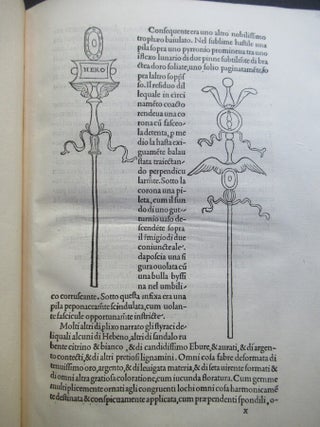 Consequente era uno altro nobilissimo
tropheo baiulato. Nel sublime hastile una
pila sopra uno pyrronio prominétca tra uno
issicéto lunario di due pinne subtilissite di bra
ctea doro foliate, uno solio paginatamēte, so
NEMO
pra laltro sopsis
so. Il residuo dil
lequale in circi
naméto coacto
rendeua una co
rona cū fasceo
la detenta, p me
dio la hasta cari-
gaaméte balau
stata traiectan-
do perpendicu
larmēte. Sotto la
corona una pi-
leta, cum il fun
do di uno gut-
turnio uaso de-
scendēte sopra
il smigiodi due
coniunctenale.
daposcia una si
gura ouolata cū
una bulla byssi
na nel umbili-
co corruscante. Sotto questa infixa era una
pila peponaceamēte scindulata, cum uolan-
te fascicule opportunamēte instricte.
Molti altri di plixo narrato gli styraci de-
liquali alcuni di Hebeno, altri di sandalo ru
beo, citrino & bianco, & di candidissimo Ebure, & aurati, & di argento
contecti, & di altri pretiosi lignamini. Omni cosa fabre deformata di
tenuissimo oro, argento, & leuatura di materia, & di seta uirente formati & di
omni altra gratiosa coloratione, cum iucunda floratura. Cum gemme
multiplicemente ornati agli congruenti lochi omni cosa harmonicamē
te destinata & conspicuamente applicata, cum præpendenti spondili, o-
x